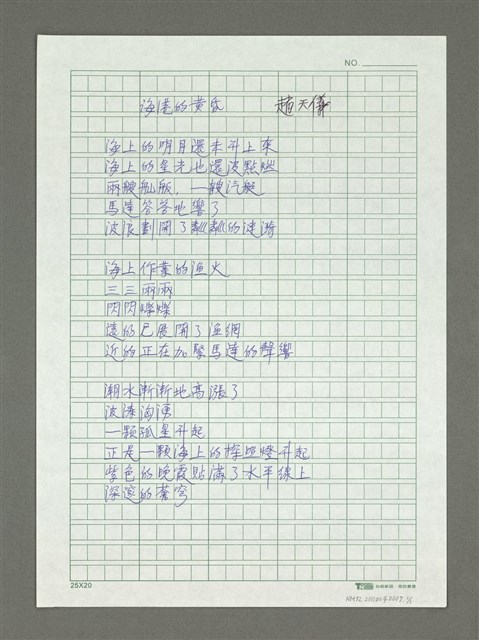 NO.
海港的黃昏 趙天儀
海上的明月還未升上來
海上的星光也還沒點燃
兩艘舢舨，一艘汽艇
馬達答答地響了
波浪劃開了粼粼的漣漪
海上作業的漁火
三三兩兩
閃閃爍爍
遠的已展開了漁網
近的正在加緊馬達的聲響
潮水漸漸地高漲了
波濤洶湧
一顆孤星升起
正是一顆海上的探照燈升起
紫色的晚霞貼滿了水平線上
深邃的蒼穹
25X20